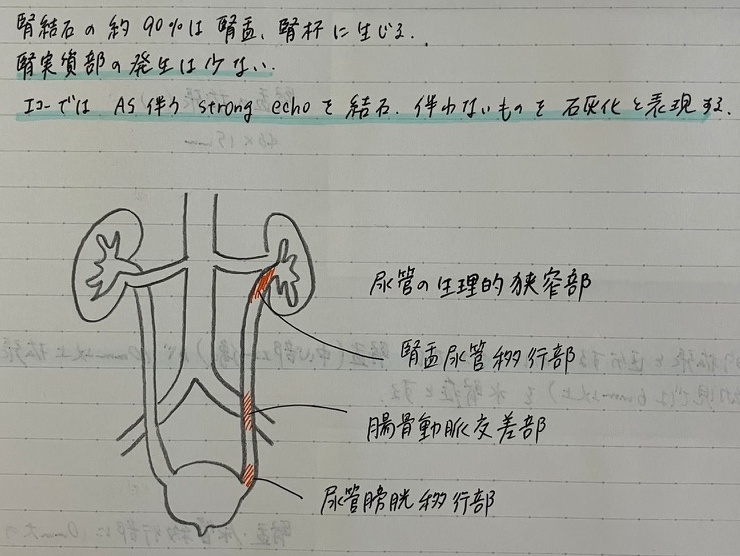 腎結石の約90%は腎盂、腎杯に生じる.
腎実質部の発生は少ない.
エコーでは AS伴う strong echo を結石. 伴わないものを石灰化と表現する.
尿管の生理的狭窄部
腎盂尿管移行部
腸骨動脈交差部
尿管膀胱移行部